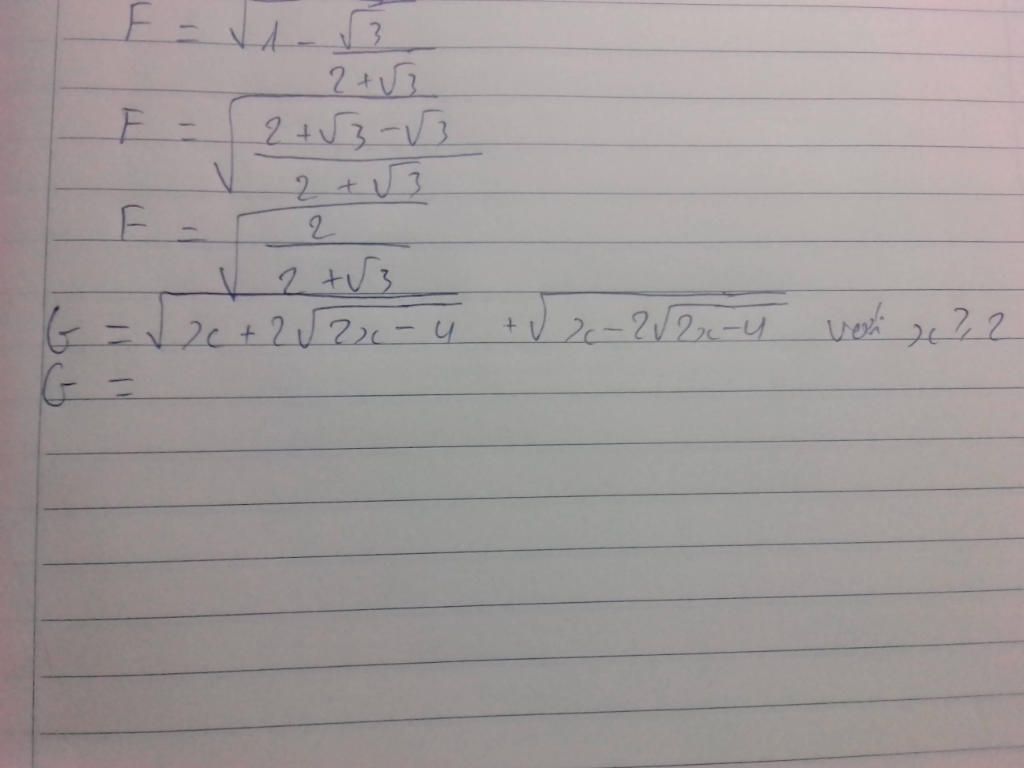 F = √(1 - √3/(2+√3))
F = √((2+√3-√3)/(2+√3))
F = √(2/(2+√3))
G = √(x+2√(2x-4)) + √(x-2√(2x-4)) với x ≥ 2
G =